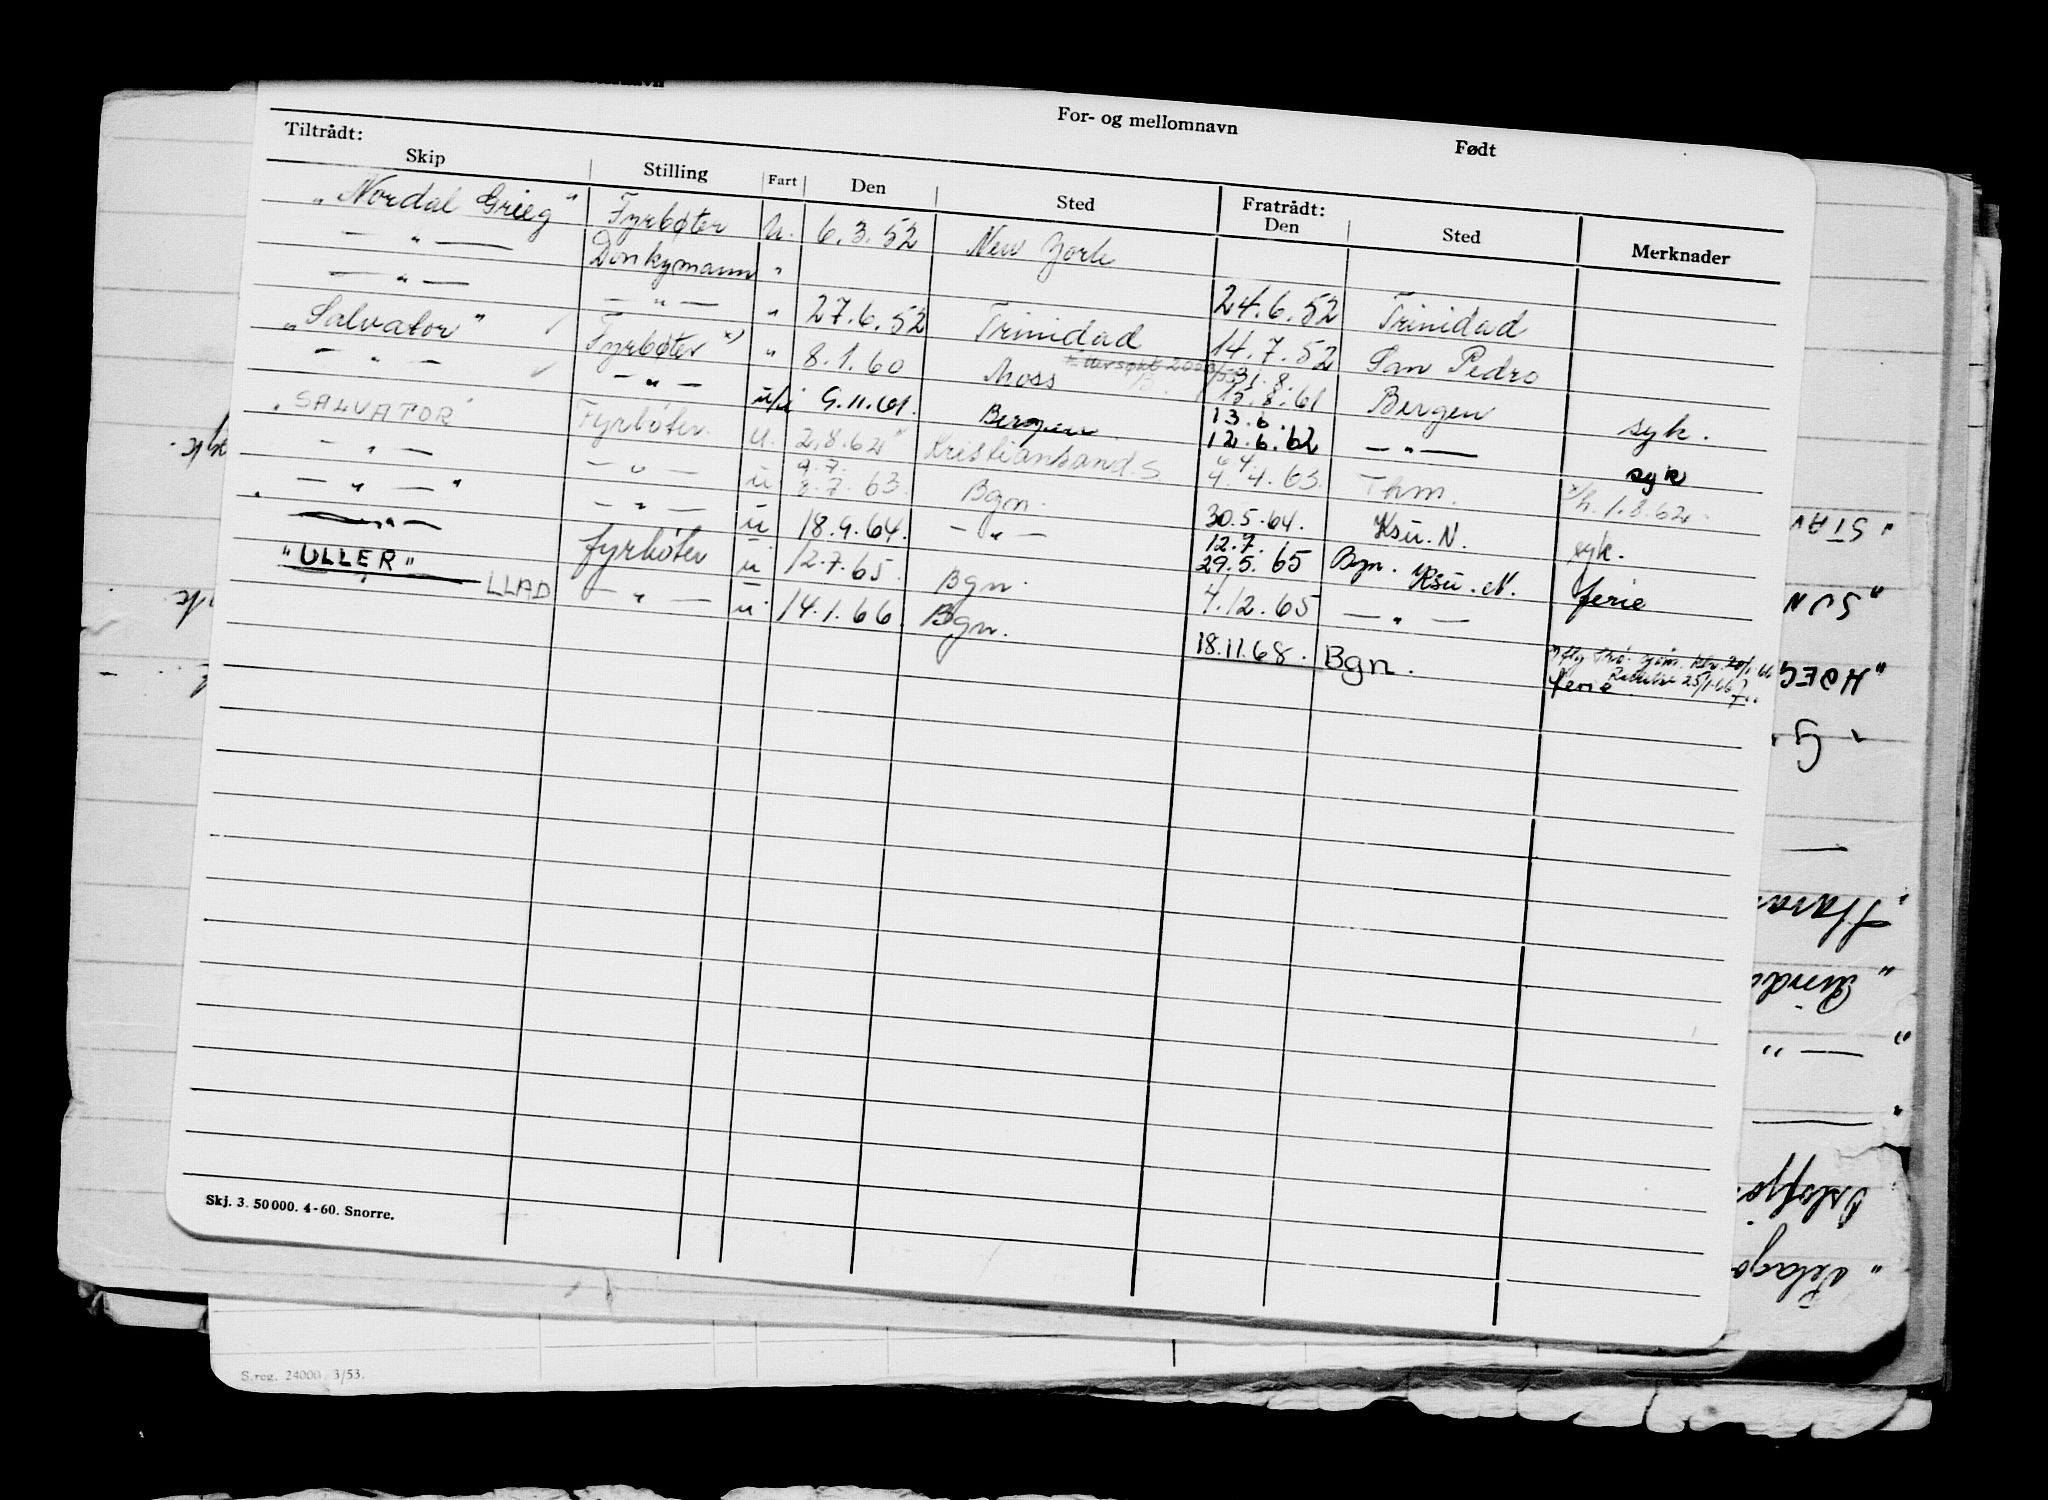 For- og mellomnavn Født
Tiltrådt: Fratrådt:
Skip Stilling Fart Den Sted Den Sted Merknader
"Nordal Grieg" Fyrbøter u. 6.3.52 New York
— " — Donkymann "
— " — — " — " 27.6.52 Trinidad 24.6.52 Trinidad
"Salvator" Fyrbøter x) " 8.1.60 Moss 14.7.52 San Pedro
— " — — " — u/i 9.11.61. Bergen 31.8. 15.8.61 Bergen syk.
"SALVATOR" Fyrbøter. u. 2.8.62 x Kristiansand. S 13.6. 12.6.62 — " — syk
— " — — " — u 9.7. 8.7.63. Bgn. 4.4.63. Thm. x/h. 1.8.62
— " — " — " — u 18.9.64. — " — 30.5.64. Ksu. N. syk.
— " — fyrbøter u 12.7.65. Bgn. 12.7. 29.5.65 Bgn. Ksu. N. ferie
"ULLER" LLAD — " — u 14.1.66. Bgn. 4.12.65 — " —
18.11.68. Bgn. ferie 25/1-66
Skj. 3. 50000. 4-60. Snorre.
S.reg. 24000. 3/53.
"STAV
"SUN
"HØEG
"Pelago